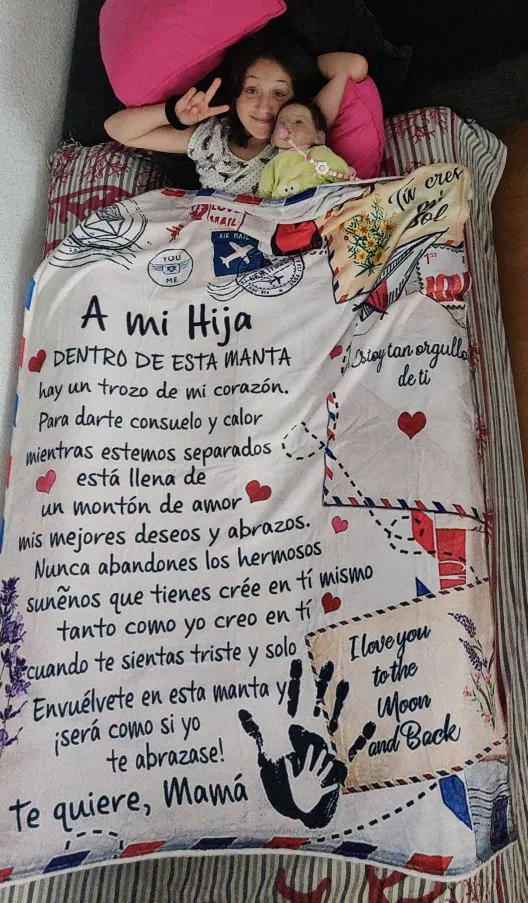 Tú eres
mi
Sol
AIR MAIL
YOU
ME
1ST
A mi Hija
DENTRO DE ESTA MANTA
hay un trozo de mi corazón.
Para darte consuelo y calor
mientras estemos separados
está llena de
un montón de amor
mis mejores deseos y abrazos.
Nunca abandones los hermosos
sunẽnos que tienes crée en tí mismo
tanto como yo creo en tí
cuando te sientas triste y solo
Envuélvete en esta manta y
¡será como si yo
te abrazase!
Te quiere, Mamá
Estoy tan orgullo
de ti
I love you
to the
Moon
and Back